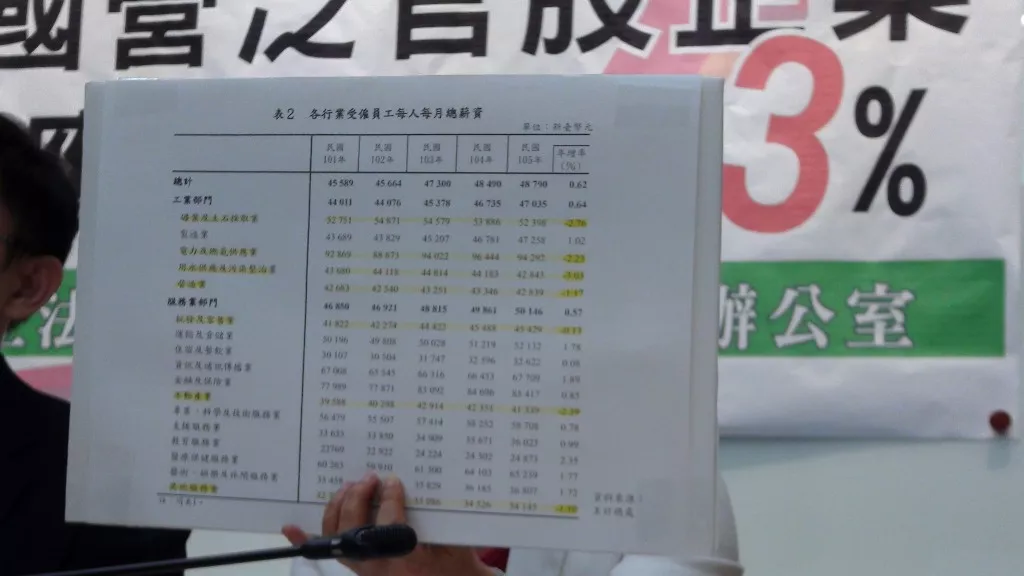 國營泛官股企業
3%
辦公室
表2 各行業受僱員工每人每月總薪資
單位：新臺幣元
民國101年 民國102年 民國103年 民國104年 民國105年 年增率(%)
總計 45 589 45 664 47 300 48 490 48 790 0.62
工業部門 44 011 44 076 45 378 46 735 47 035 0.64
礦業及土石採取業 52 751 54 871 54 579 53 886 52 398 -2.76
製造業 43 689 43 829 45 207 46 781 47 258 1.02
電力及燃氣供應業 92 869 88 673 94 022 96 444 94 292 -2.23
用水供應及污染整治業 43 080 44 118 44 814 44 183 42 843 -3.03
營造業 42 663 42 540 43 251 43 346 42 839 -1.17
服務業部門 46 850 46 921 48 815 49 861 50 146 0.57
批發及零售業 41 822 42 274 44 423 45 488 45 429 -0.13
運輸及倉儲業 50 196 49 808 50 028 51 219 52 132 1.78
住宿及餐飲業 30 107 30 504 31 747 32 596 32 622 0.08
資訊及通訊傳播業 67 008 65 845 66 316 66 453 67 709 1.89
金融及保險業 77 989 77 871 83 092 84 686 85 417 0.85
不動產業 39 588 40 288 42 914 42 351 41 339 -2.39
專業、科學及技術服務業 56 479 55 507 57 414 58 252 58 708 0.78
支援服務業 33 633 33 850 34 909 35 671 36 023 0.99
教育服務業 22760 22 922 24 224 24 302 24 873 2.35
醫療保健服務業 60 263 58 910 61 300 64 103 65 239 1.77
藝術、娛樂及休閒服務業 35 829 36 185 36 807 1.72
其他服務業 34 526 34 145 -1.10
註：同表1。
資料來源：
主計總處